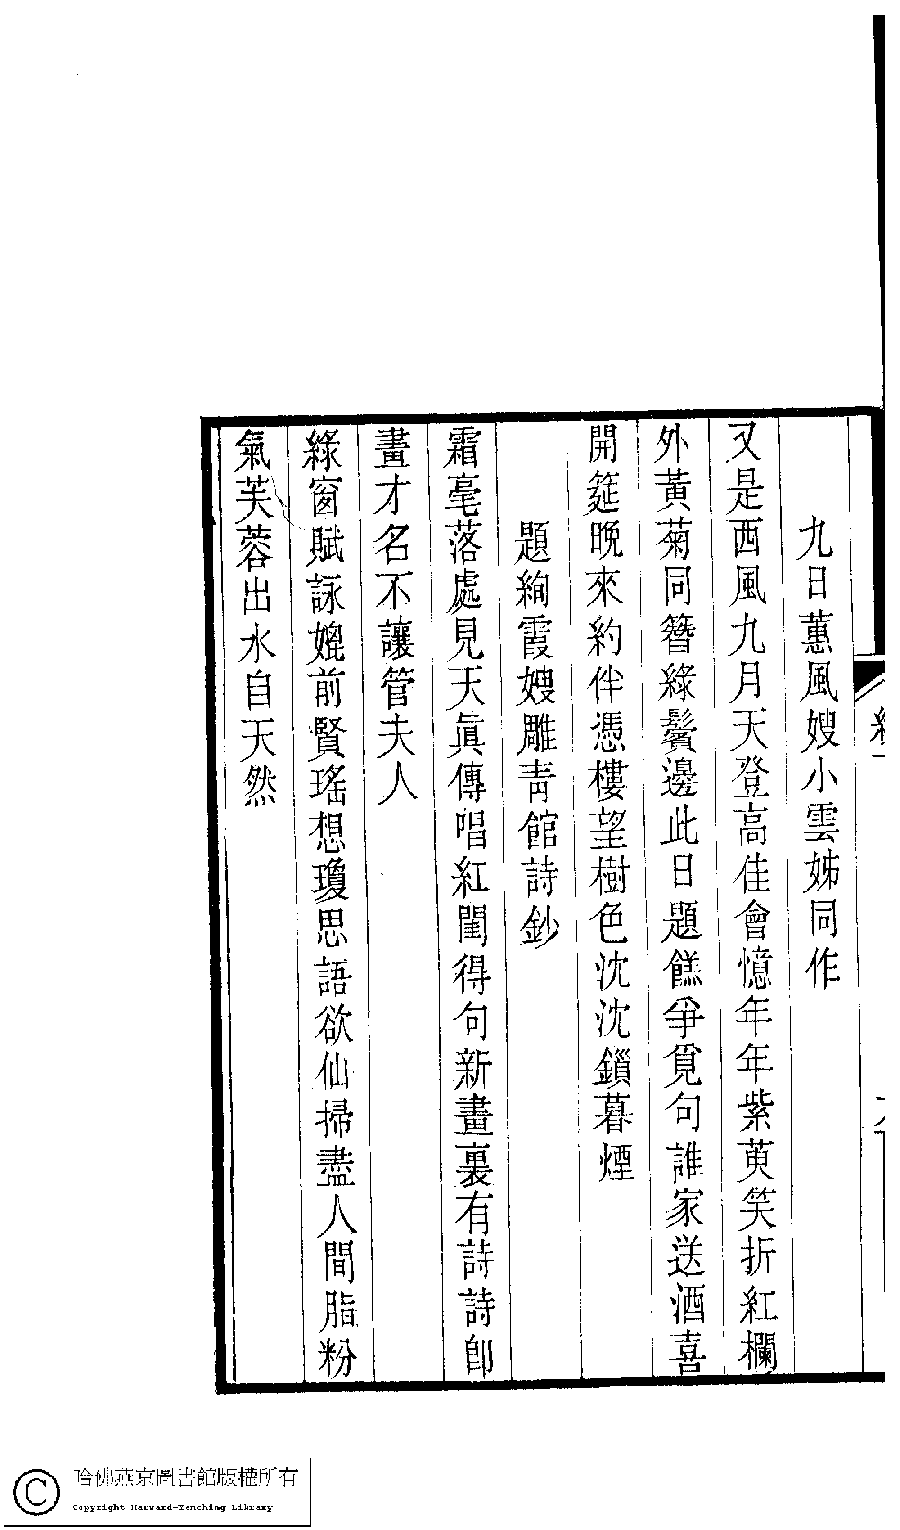 九日蕙風嫂小雲姊同作
又是西風九月天登高佳會憶年年紫萸笑折紅欄
外黃菊同簪綠鬢邊此日題餻爭覓句誰家送酒喜
開筵晚來約伴憑樓望樹色沈沈鎖暮煙
題絢霞嫂雕青館詩鈔
霜毫落處見天眞傳唱紅閨得句新畫裏有詩詩卽
畫才名不讓管夫人
綠窗賦詠媲前賢瑤想瓊思語欲仙掃盡人間脂粉
氣芙蓉出水自天然
哈佛燕京圖書館版權所有
Copyright Harvard-Yenching Library